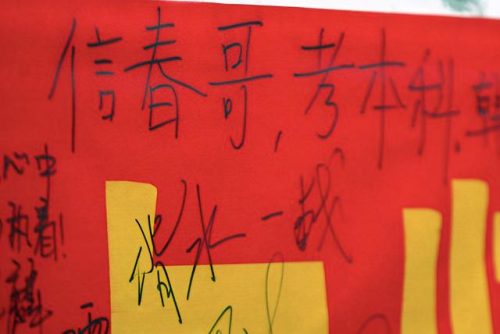 信春哥,考本科,
背水一战
心中
执着!